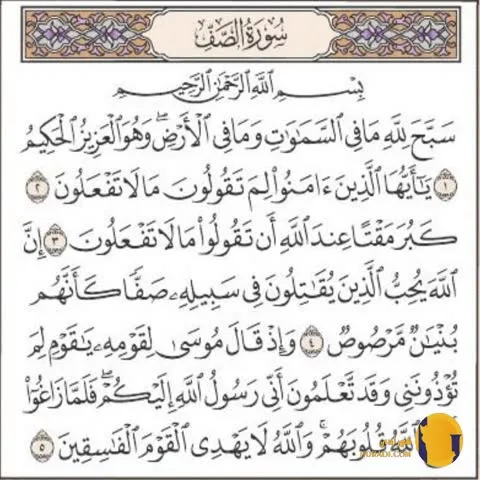 سُورَةُ الصَّفِّ
بِسْمِ اللَّهِ الرَّحْمَٰنِ الرَّحِيمِ
سَبَّحَ لِلَّهِ مَا فِي السَّمَاوَاتِ وَمَا فِي الْأَرْضِ ۖ وَهُوَ الْعَزِيزُ الْحَكِيمُ
١ يَا أَيُّهَا الَّذِينَ ءَامَنُوا لِمَ تَقُولُونَ مَا لَا تَفْعَلُونَ ٢
كَبُرَ مَقْتًا عِندَ اللَّهِ أَن تَقُولُوا مَا لَا تَفْعَلُونَ ٣ إِنَّ
اللَّهَ يُحِبُّ الَّذِينَ يُقَاتِلُونَ فِي سَبِيلِهِ صَفًّا كَأَنَّهُم
بُنْيَانٌ مَّرْصُوصٌ ٤ وَإِذْ قَالَ مُوسَىٰ لِقَوْمِهِ يَا قَوْمِ لِمَ
تُؤْذُونَنِي وَقَد تَّعْلَمُونَ أَنِّي رَسُولُ اللَّهِ إِلَيْكُمْ ۖ فَلَمَّا زَاغُوا
اللَّهُ قُلُوبَهُمْ ۚ وَاللَّهُ لَا يَهْدِي الْقَوْمَ الْفَاسِقِينَ ٥